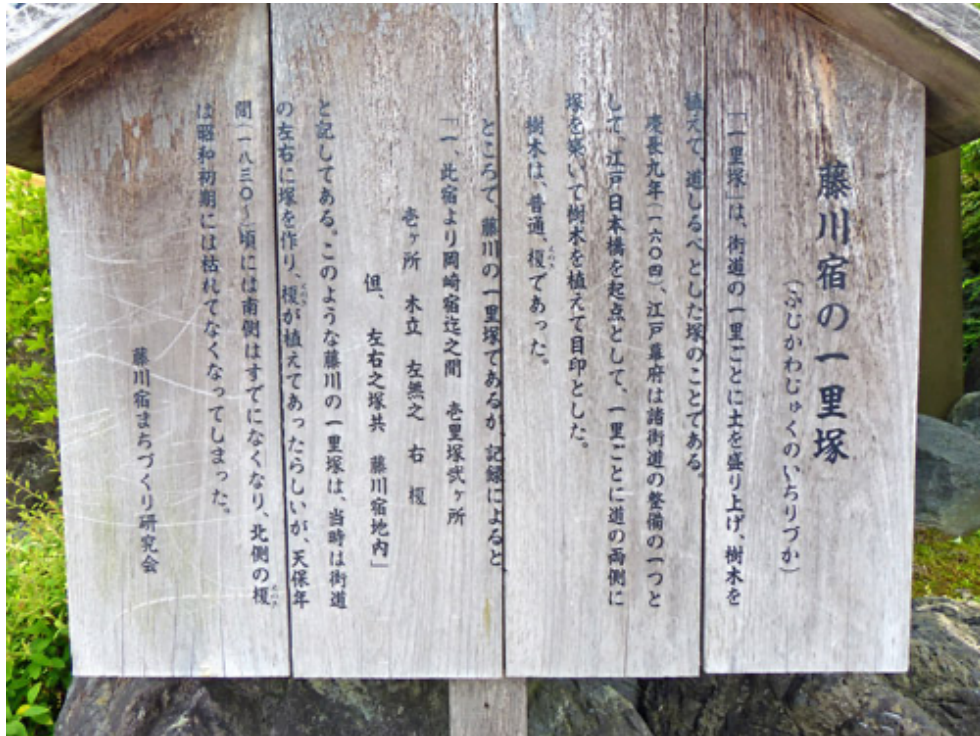 藤川宿の一里塚
(ふじかわじゅくのいちりづか)
「一里塚」は、街道の一里ごとに土を盛り上げ、樹木を
植えて、道しるべとした塚のことである。
慶長九年(一六〇四)、江戸幕府は諸街道の整備の一つと
して、江戸日本橋を起点として、一里ごとに道の両側に
塚を築いて樹木を植えて目印とした。
樹木は、普通、榎であった。
ところで、藤川の一里塚であるが、記録によると
「一、此宿より岡崎宿迄之間 壱里塚弐ヶ所
壱ヶ所 木立 左無之 右 榎
但、 左右之塚共 藤川宿地内」
と記してある。このような藤川の一里塚は、当時は街道
の左右に塚を作り、榎が植えてあったらしいが、天保年
間(一八三〇~)頃には南側はすでになくなり、北側の榎
は昭和初期には枯れてなくなってしまった。
藤川宿まちづくり研究会